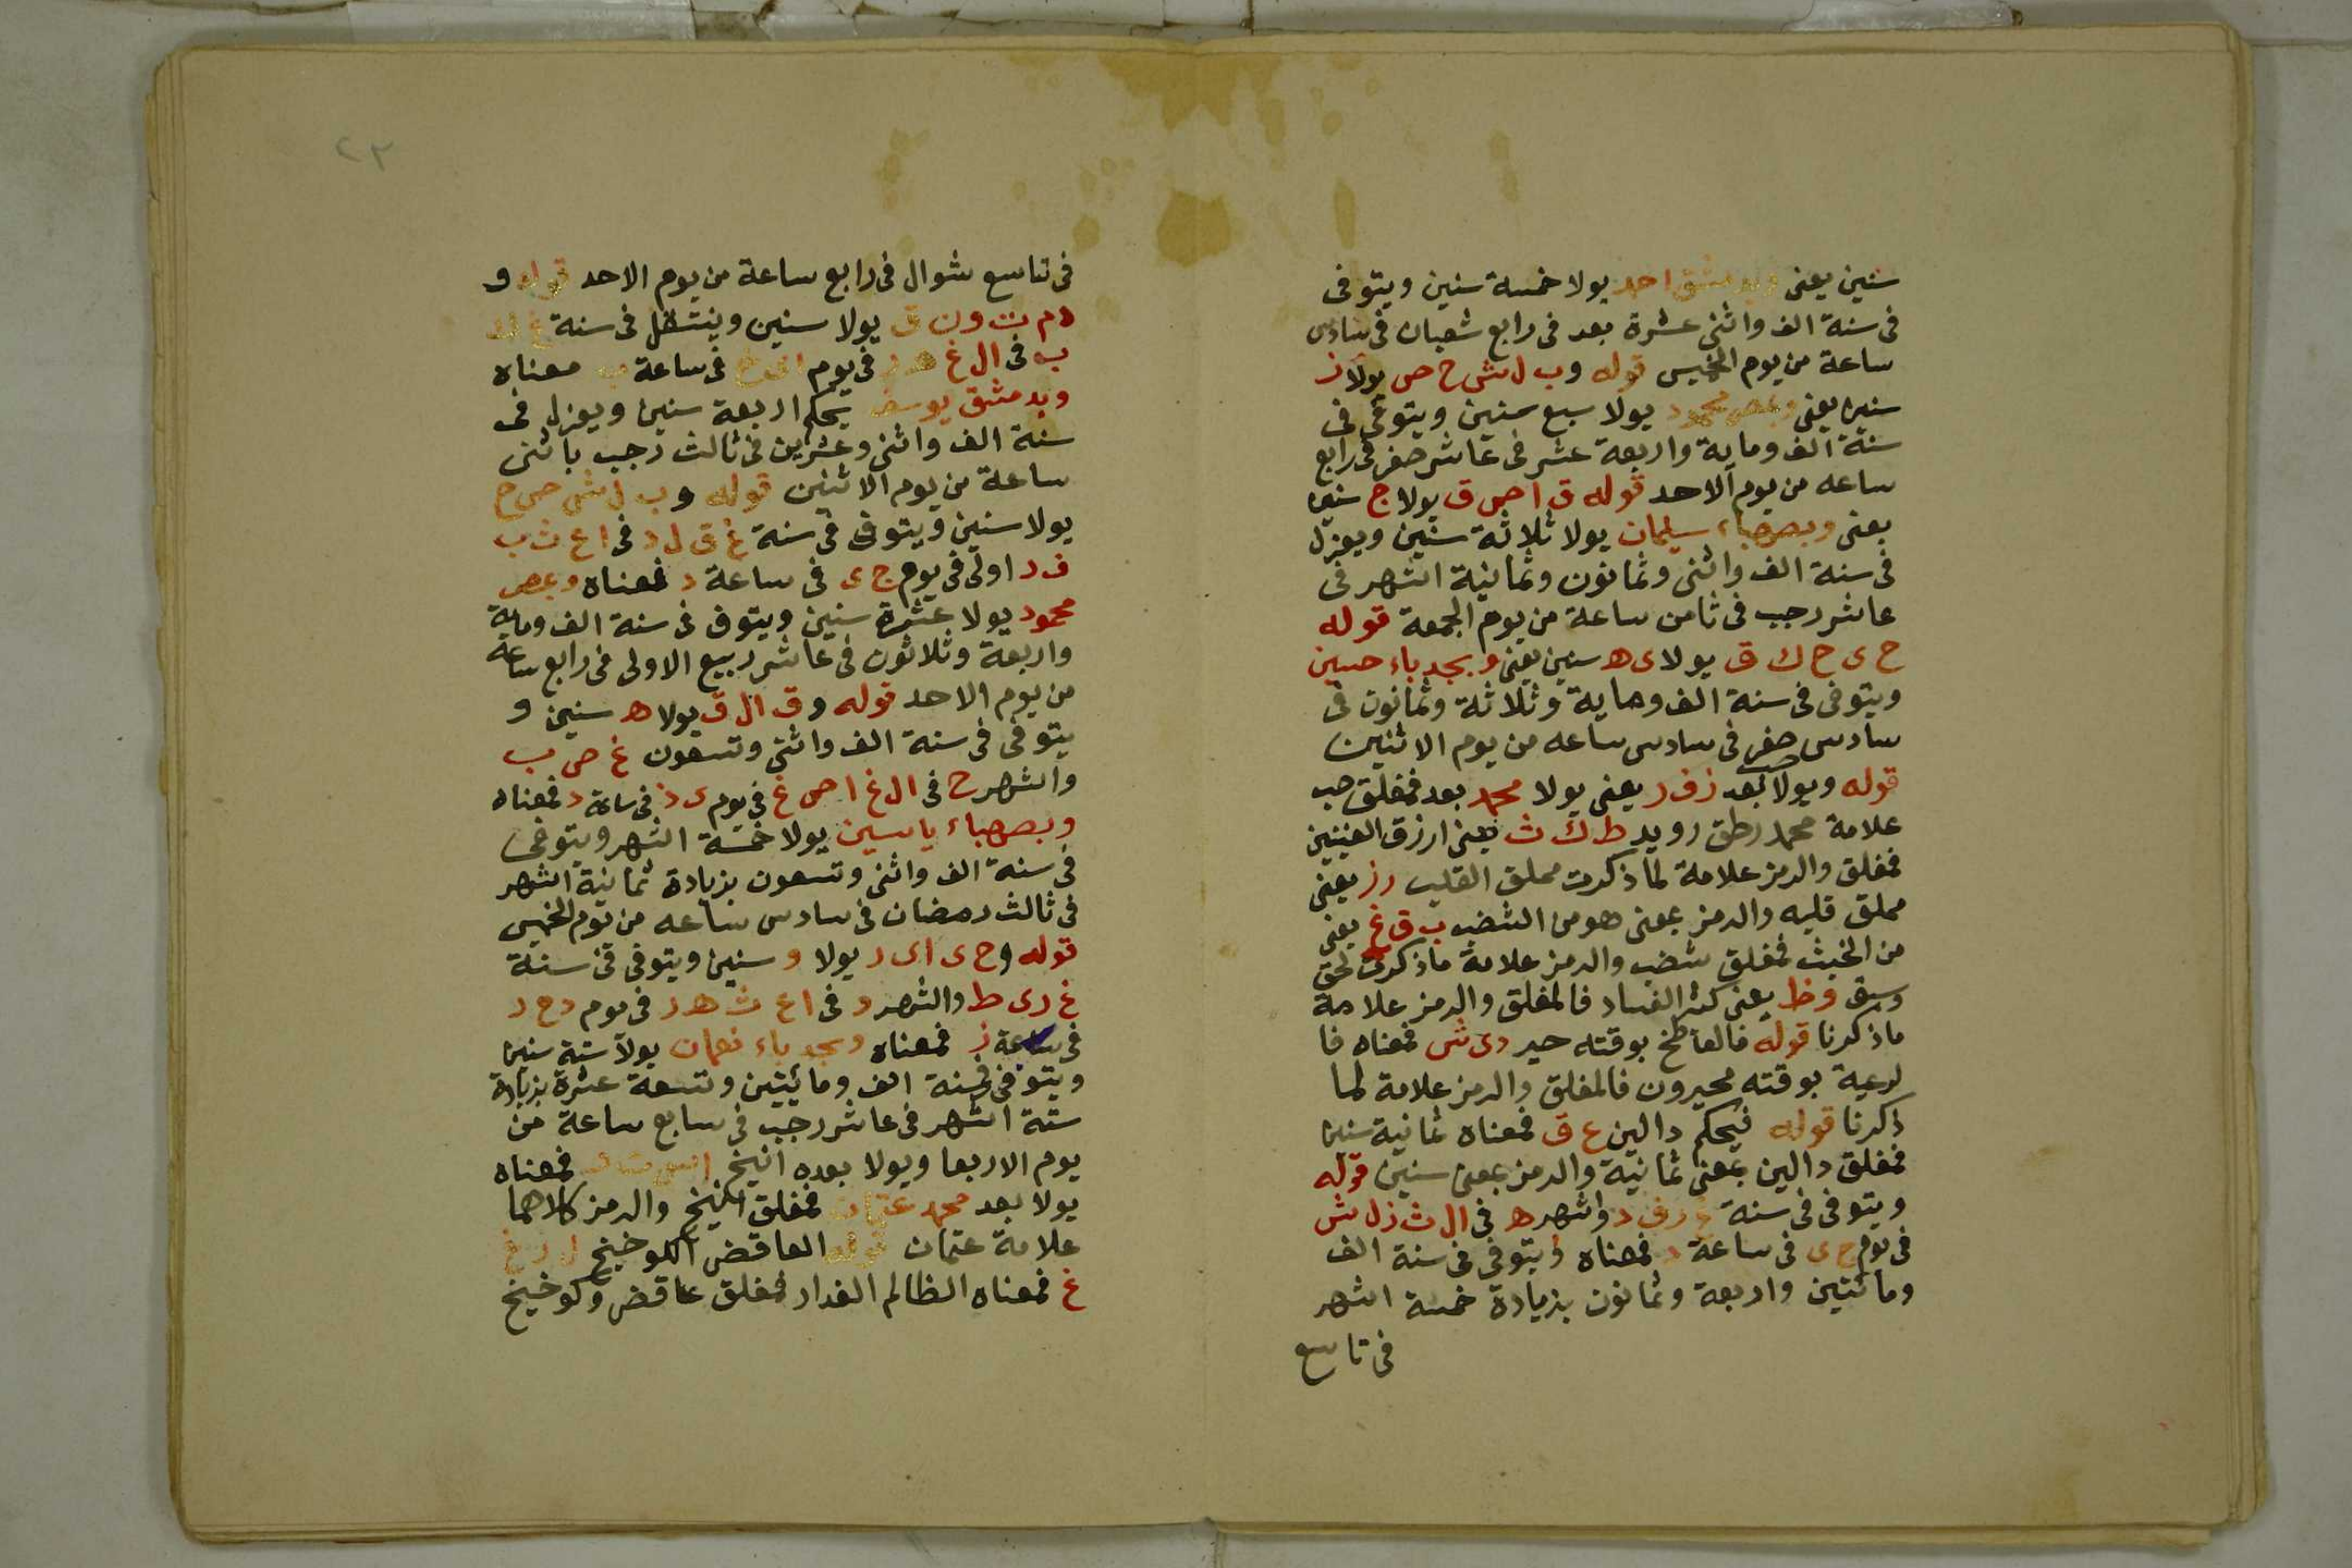 سنين يعنى وبدمشق احد يولا خمسة سنين ويتوفى
فى سنة الف واثنى عشرة بعد فى رابع شعبان فى سادس
ساعة من يوم الخميس قوله وب ل ش ح ص يولا ز
سنين يعنى وبمصر محمود يولا سبع سنين ويتوفى فى
سنة الف وماية واربعة عشر فى عاشر صفر فى رابع
ساعه من يوم الاحد قوله ق ا ص ق يولا ج سنين
يعنى وبصهباء سليمان يولا ثلاثة سنين ويعزل
فى سنة الف واثنى وثمانون وثمانية اشهر فى
عاشر رجب فى ثامن ساعة من يوم الجمعة قوله
ح ى ح ك ق يولا ى ه سنين يعنى وبجدباء حسين
ويتوفى فى سنة الف وماية وثلاثة وثمانون فى
سادس صفر فى سادس ساعه من يوم الاثنين
قوله ويولا بعد ز ف ر يعنى يولا محمد بعد فمغلق حب
علامة محمد رطق رويد ط ك ث يعنى ارزق العينين
فمغلق والرمز علامة لما ذكرت مملق القليب رز يعنى
مملق قليه والرمز بمعنى هو من الشضب ب ق غ يعنى
من الخبث فمغلق شضب والرمز علامة ماذكرت لحق
وسبق وظ يعنى كثر الفساد فالمغلق والرمز علامة
ماذكرنا قوله فالعاطخ بوقته حير دى ش فمعناه فا
لرعية بوقته محيرون فالمغلق والرمز علامة لما
ذكرنا قوله فيحكم دالين ع ق فمعناه ثمانية سنين
فمغلق دالين بمعنى ثمانية والرمز بمعنى سنين قوله
ويتوفى فى سنة غ ر ف د واشهر ه فى ال ث ز ل ش
فى يوم ج ى فى ساعة د فمعناه ويتوفى فى سنة الف
ومائتين واربعة وثمانون بزيادة خمسة اشهر
فى تاسع
٢٣
فى تاسع شوال فى رابع ساعة من يوم الاحد قوله و
د م ت و ن ق يولا سنين وينتقل فى سنة
ب فى ال غ فى يوم فى ساعة ب معناه
وبدمشق يوسف يحكم اربعة سنين ويعزل فى
سنة الف واثنى وعشرين فى ثالث رجب باثنى
ساعة من يوم الاثنين قوله وب ل ش ص ح
يولا سنين ويتوفى فى سنة غ ق ل د فى ا ع ث ب
ف د اولى فى يوم ج ى فى ساعة د فمعناه وبمصر
محمود يولا عشرة سنين ويتوفى فى سنة الف وماية
واربعة وثلاثون فى عاشر ربيع الاولى فى رابع ساعة
من يوم الاحد قوله وق ال ق يولا ه سنين و
يتوفى فى سنة الف واثنى وتسعون غ ص ب
والشهر ح فى ال غ ا ص غ فى يوم ى د فى ساعة د فمعناه
وبصهباء ياسين يولا خمسة اشهر ويتوفى
فى سنة الف واثنى وتسعون بزيادة ثمانية اشهر
فى ثالث رمضان فى سادس ساعه من يوم الخميس
قوله وح ى اى ر يولا و سنين ويتوفى فى سنة
غ رى ط والشهر و فى ا ع ث ه ر فى يوم د ح د
فى ساعة ز فمعناه وبجدباء نعمان يولا ستة سنين
ويتوفى فى سنة الف ومائيتين وتسعة عشرة بزيادة
ستة اشهر فى عاشر رجب فى سابع ساعة من
يوم الاربعا ويولا بعده انيخ فمعناه
يولا بعد محمد عتمان فمغلق انيخ والرمز كلاهما
علامة عتمان قوله العاقض الكوخيخ ل ر غ
غ فمعناه الظالم الغدار فمغلق عاقض وكوخيخ